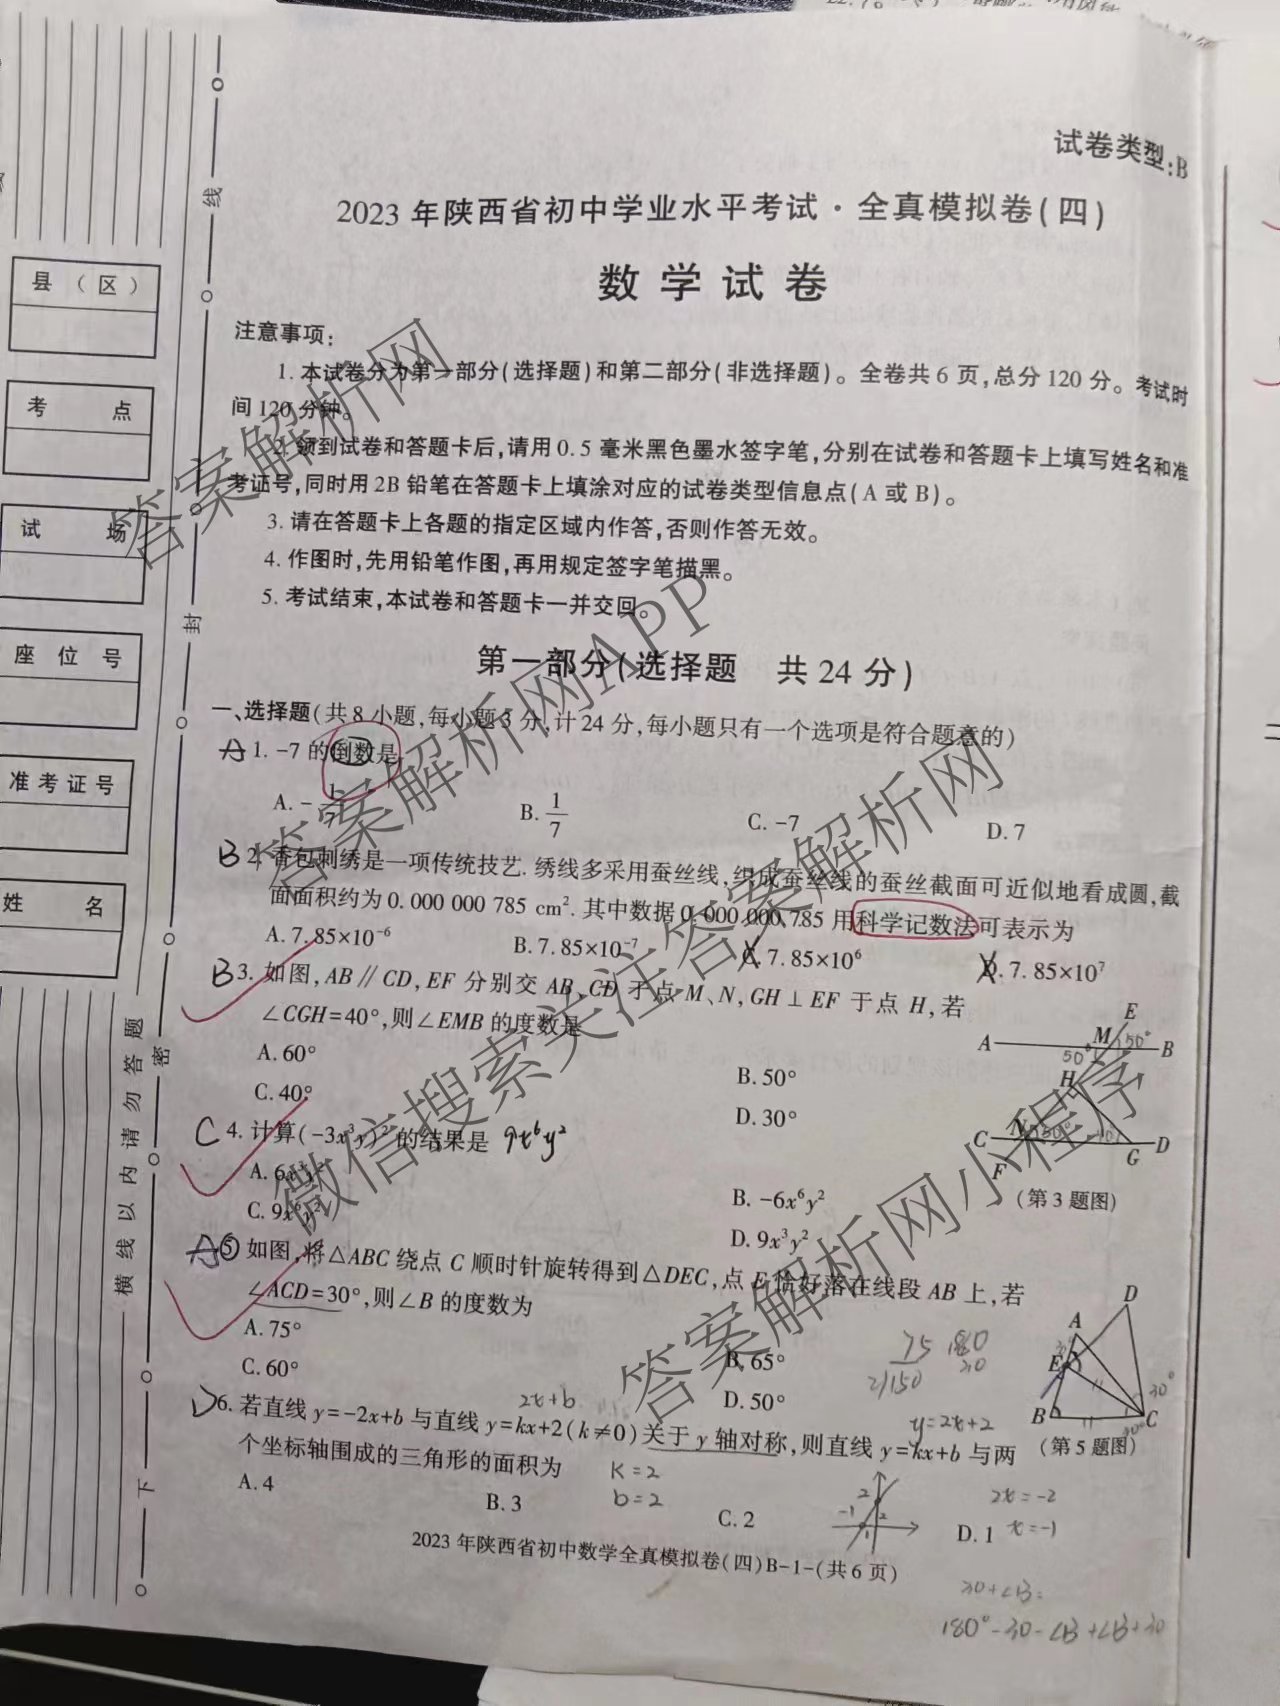 试卷类型:B
2023年陕西省初中学业水平考试·全真模拟卷(四)
数学试卷
注意事项:
1.本试卷分为第一部分(选择题)和第二部分(非选择题)。全卷共6页,总分120分。考试时
间120分钟。
2.领到试卷和答题卡后,请用0.5毫米黑色墨水签字笔,分别在试卷和答题卡上填写姓名和准
考证号,同时用2B铅笔在答题卡上填涂对应的试卷类型信息点(A或B)。
3.请在答题卡上各题的指定区域内作答,否则作答无效。
4.作图时,先用铅笔作图,再用规定签字笔描黑。
5.考试结束,本试卷和答题卡一并交回。
第一部分(选择题 共24分)
一、选择题(共8小题,每小题3分,计24分,每小题只有一个选项是符合题意的)
A 1. -7的倒数是
A. -1/7 B. 1/7 C. -7 D. 7
B 2.香包刺绣是一项传统技艺.绣线多采用蚕丝线,织成蚕丝线的蚕丝截面可近似地看成圆,截
面面积约为0.000 000 785 cm². 其中数据0.000 000 785用科学记数法可表示为
A. 7.85×10⁻⁶ B. 7.85×10⁻⁷ C. 7.85×10⁶ D. 7.85×10⁷
B 3. 如图,AB∥CD,EF分别交AB、CD于点M、N,GH⊥EF于点H,若
∠CGH=40°,则∠EMB的度数是
A. 60° B. 50°
C. 40° D. 30°
A M E B 50° 50°
H
C N 50° 40° G D
F
(第3题图)
C 4. 计算(-3x³y)²的结果是 9x⁶y²
A. 6x⁶y² B. -6x⁶y²
C. 9x⁶y² D. 9x³y²
A 5 如图,将△ABC绕点C顺时针旋转得到△DEC,点E恰好落在线段AB上,若
∠ACD=30°,则∠B的度数为
A. 75° B. 65°
C. 60° D. 50°
75 180
2)150 30
D
A
E
B C 30°
30°
(第5题图)
D 6. 若直线y=-2x+b与直线y=kx+2(k≠0)关于y轴对称,则直线y=kx+b与两
个坐标轴围成的三角形的面积为
2x+b
y=2x+2
K=2
b=2
A. 4 B. 3 C. 2 D. 1
2 -1 2 1
2x=-2
x=-1
2023年陕西省初中数学全真模拟卷(四)B-1-(共6页)
30+∠B=
180°-30-∠B+∠B+30
县(区)
考点
试场
座位号
准考证号
姓名
线
封
密
下
横线以内请勿答题
答案解析网
微信搜索关注答案解析网
答案解析网APP
答案解析网小程序